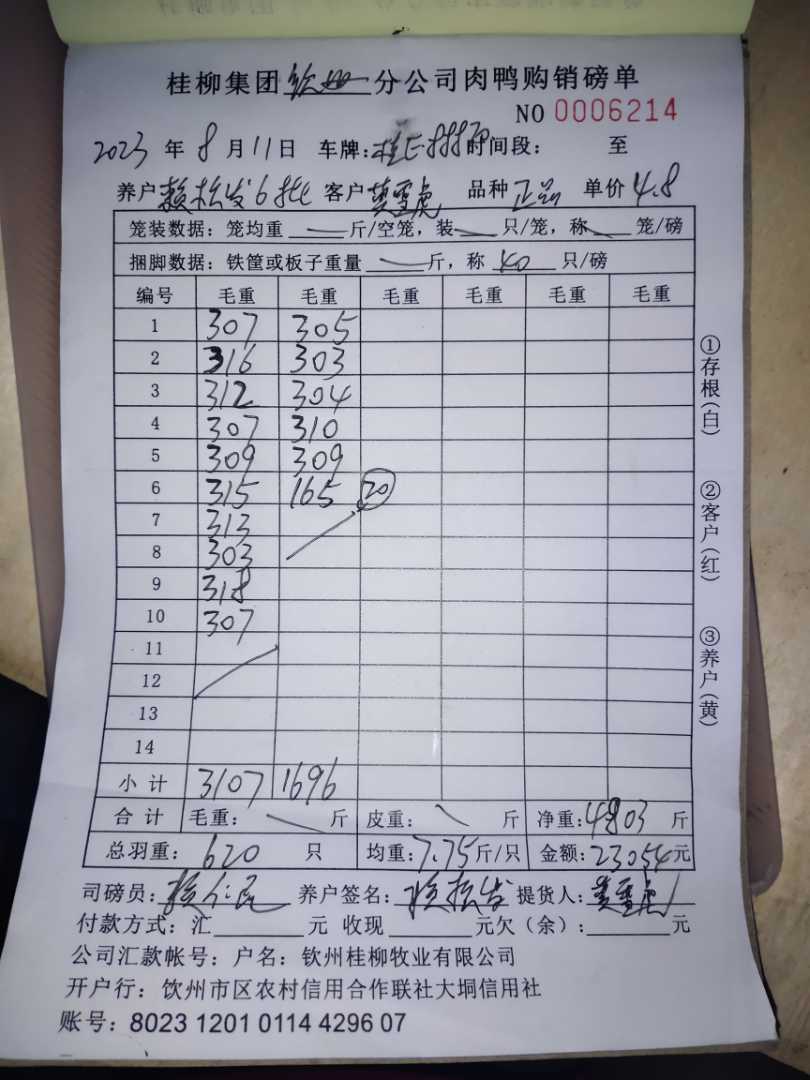 桂柳集团钦州分公司肉鸭购销磅单
NO 0006214
2023 年 8 月 11 日 车牌: 时间段: 至
养户 赖松发6批 客户 黄雪虎 品种 正品 单价 4.8
笼装数据: 笼均重 斤/空笼, 装 只/笼, 称 笼/磅
捆脚数据: 铁筐或板子重量 斤, 称 40 只/磅
编号 毛重 毛重 毛重 毛重 毛重 毛重
1 307 305
2 316 303
3 312 304
4 307 310
5 309 309
6 315 165 20
7 313
8 303
9 318
10 307
11
12
13
14
小计 3107 1696
合计 毛重: 斤 皮重: 斤 净重: 4803 斤
总羽重: 620 只 均重: 7.75 斤/只 金额: 23054 元
司磅员: 养户签名: 赖松发 提货人: 黄雪虎
付款方式: 汇 元 收现 元欠(余): 元
公司汇款帐号: 户名: 钦州桂柳牧业有限公司
开户行: 饮州市区农村信用合作联社大垌信用社
账号: 8023 1201 0114 4296 07
①存根(白)
②客户(红)
③养户(黄)